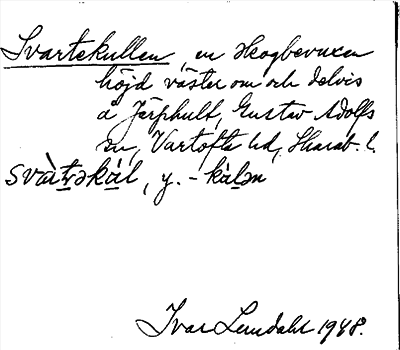 Svartekullen, en skogbevuxen
höjd väster om och delvis
å Järphult, Gustav Adolfs
sn, Vartofta hd, Skarab. l.
svàtəkàl, y. - kàlən
Ivar Lundahl 1948.